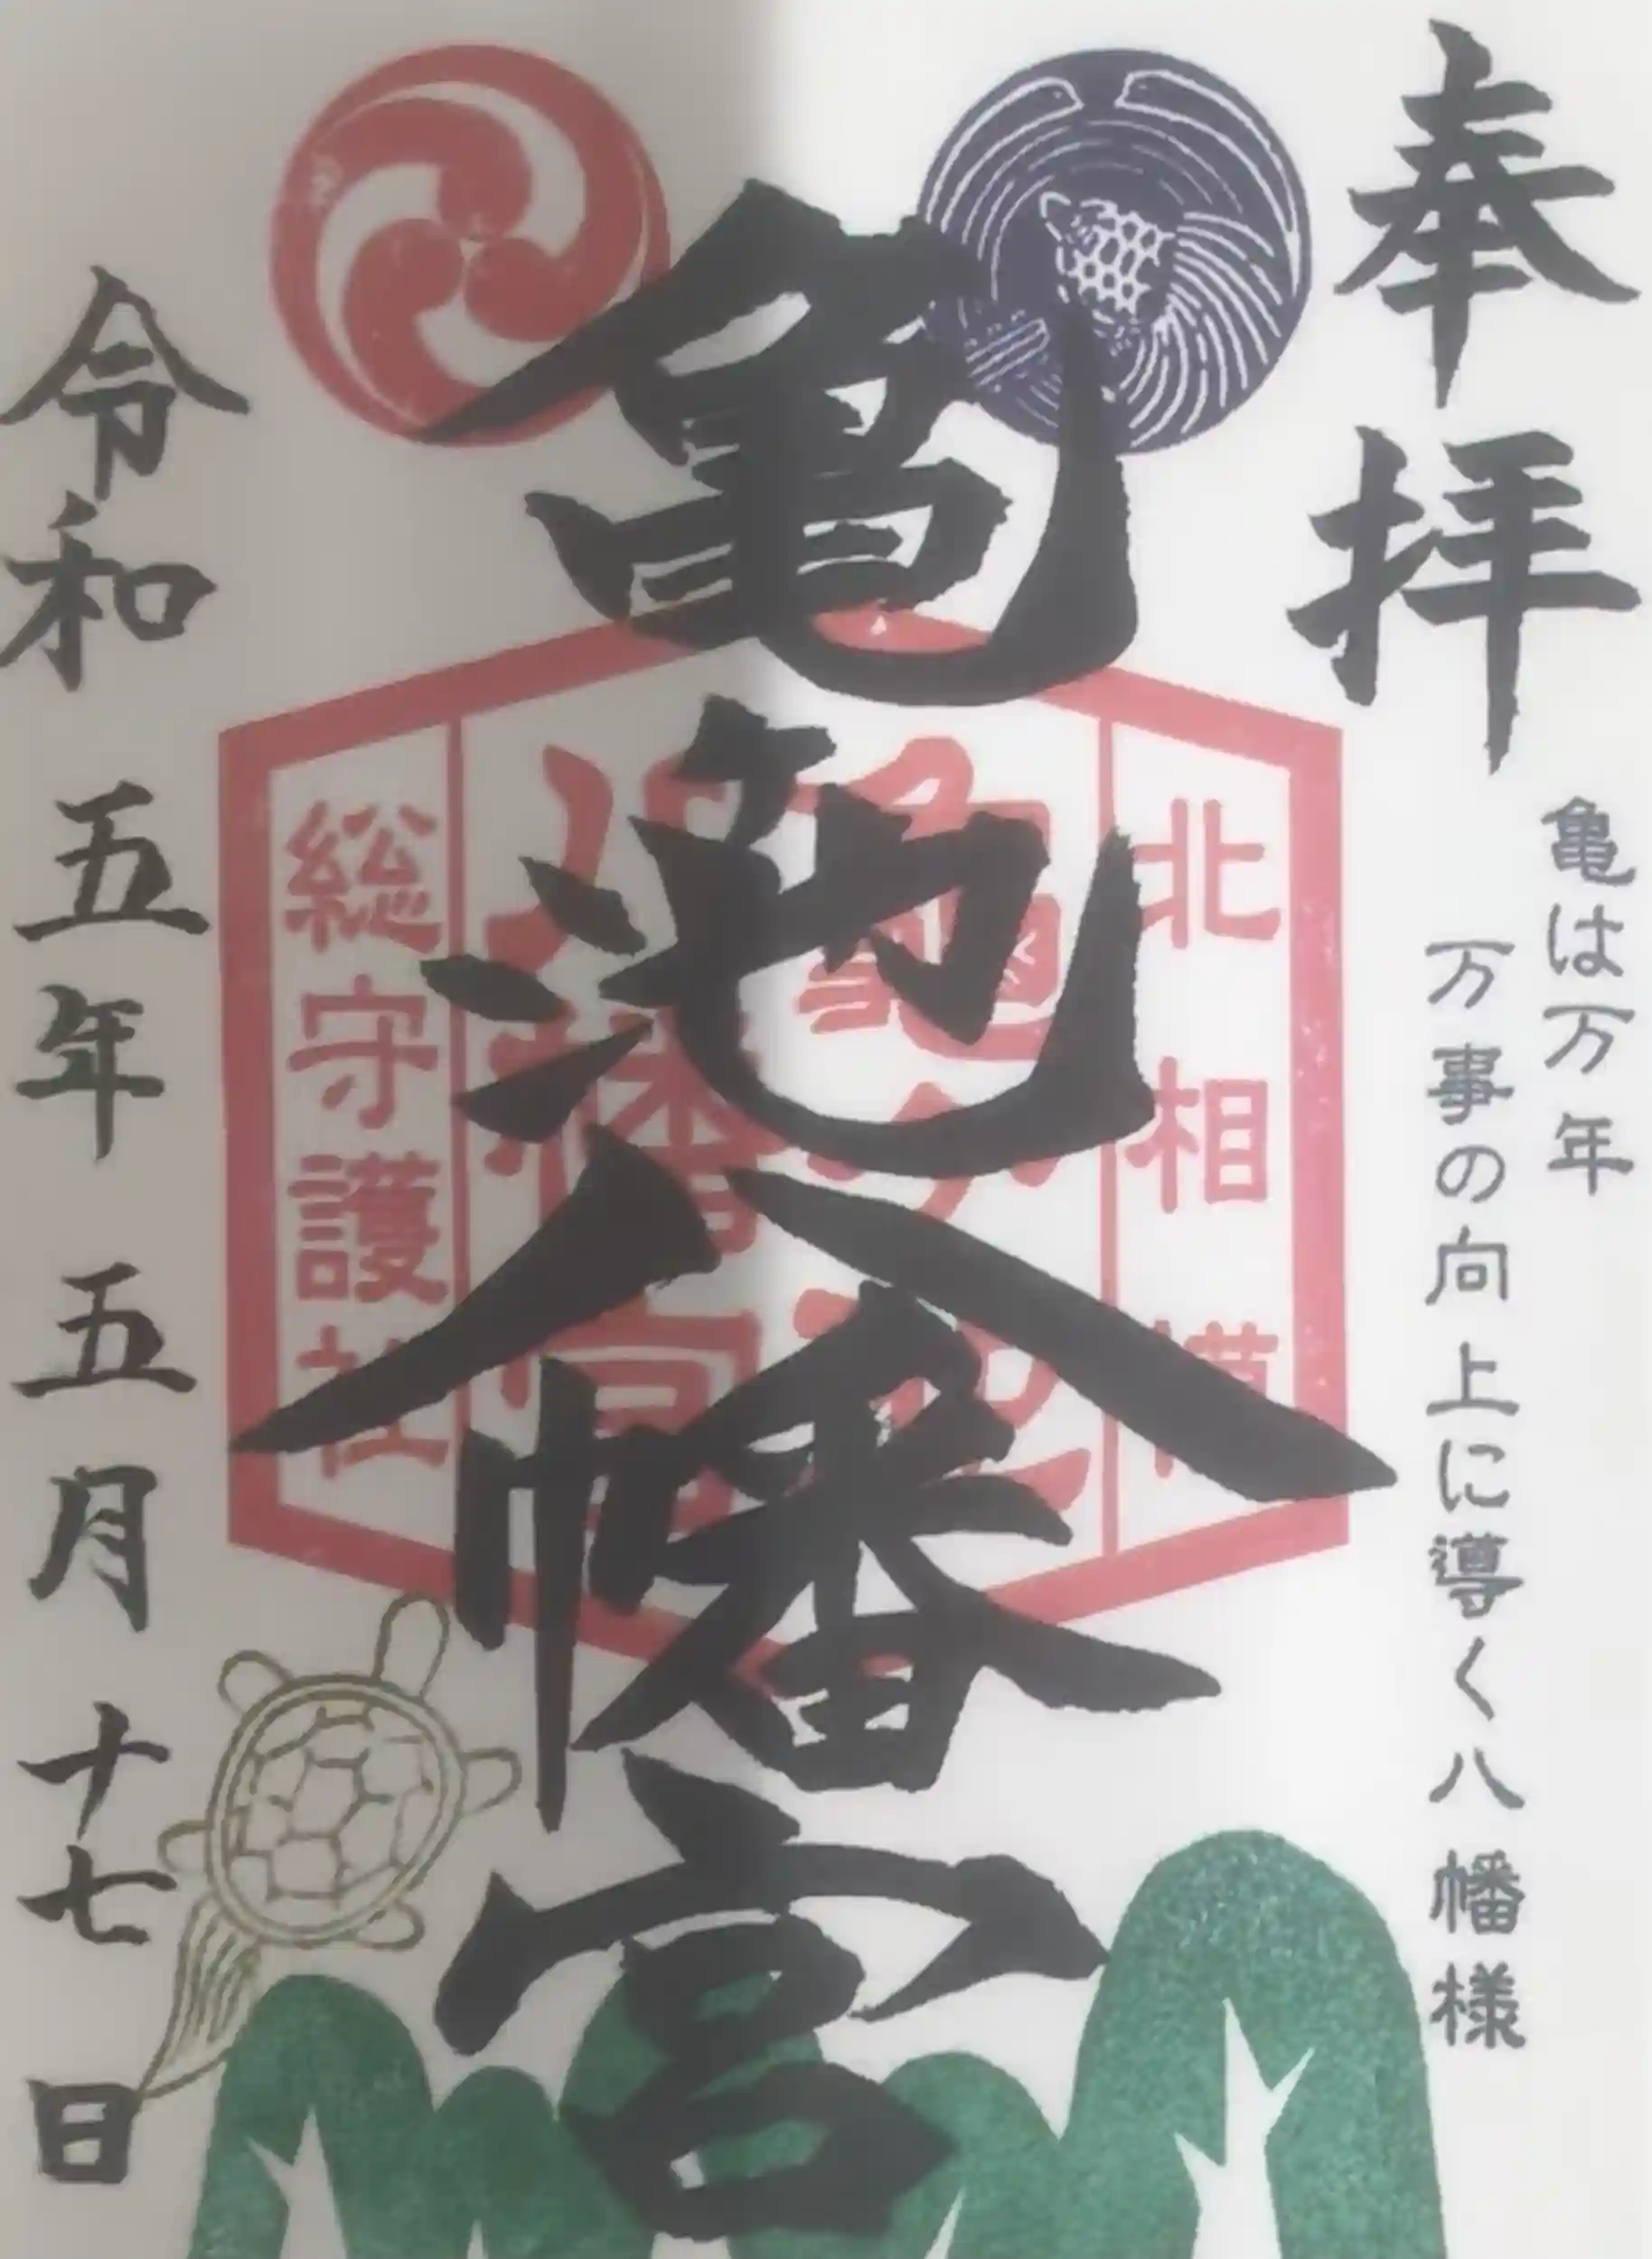 奉拝
亀は万年
万事の向上に導く八幡様
亀池八幡宮
北相模
亀ヶ池
八幡宮
総守護社
令和五年五月十七日